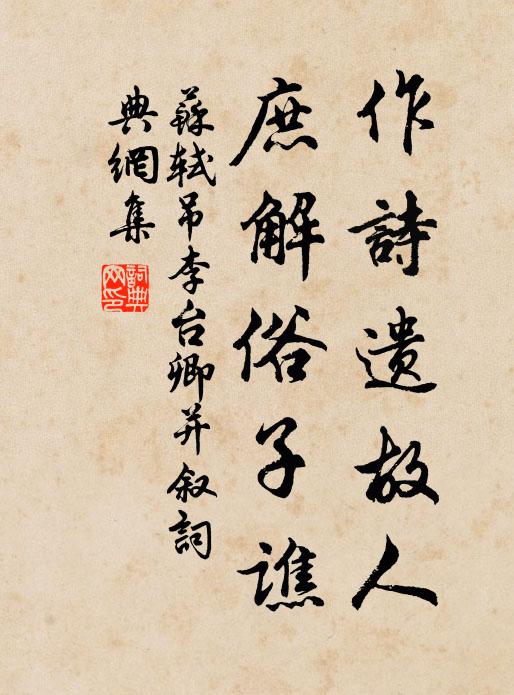 作詩遺故人
庶解俗子譙
蘇軾吊李台卿并叙詞
典網集
詞典网印